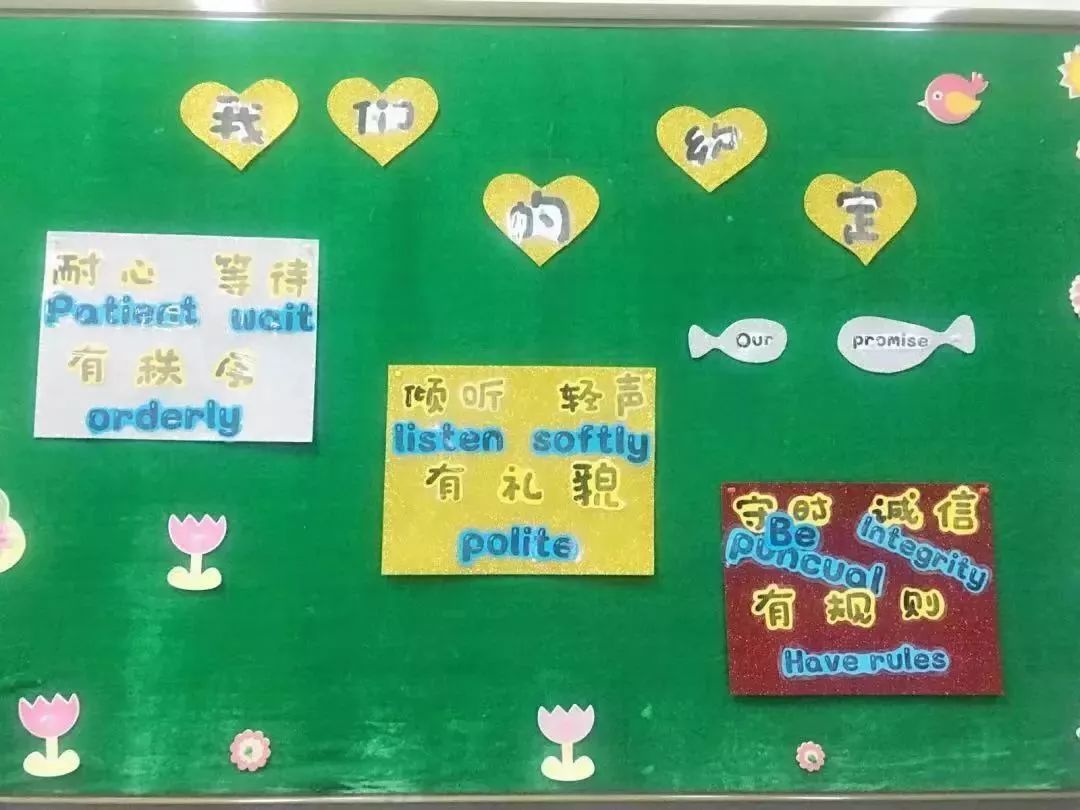 我们的约定
Our promise
耐心 等待
Patient wait
有秩序
orderly
倾听 轻声
listen softly
有礼貌
polite
守时 诚信
Be Integrity
puncual
有规则
Have rules